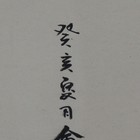 癸亥夏月